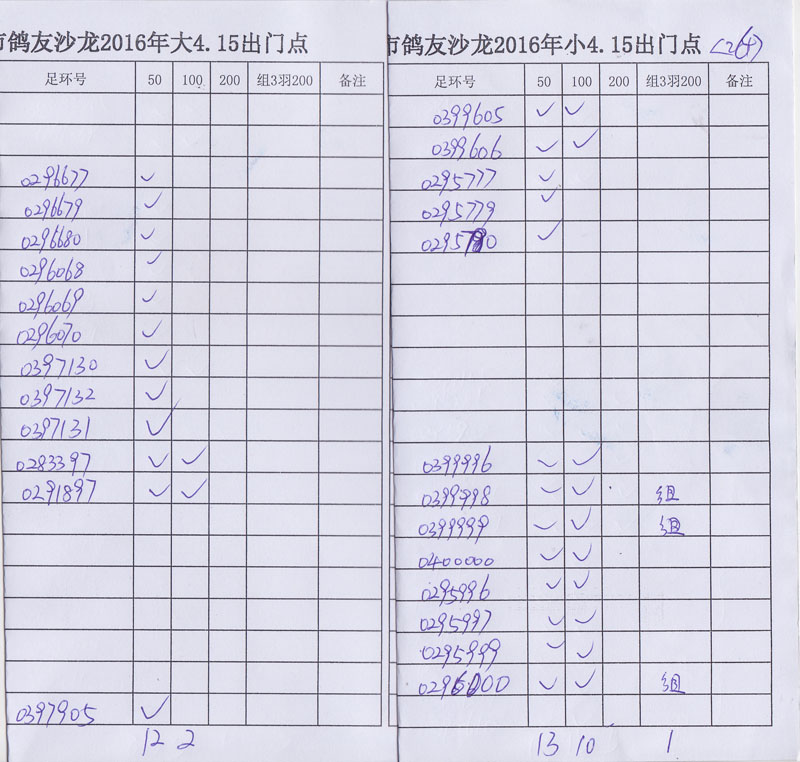 市鸽友沙龙2016年大4.15出门点
足环号 50 100 200 组3羽200 备注
0296677 ✓
0296679 ✓
0296680 ✓
0296068 ✓
0296069 ✓
0296070 ✓
0397130 ✓
0397132 ✓
0397131 ✓
0283397 ✓ ✓
0291897 ✓ ✓
0397905 ✓
12 2
市鸽友沙龙2016年小4.15出门点
足环号 50 100 200 组3羽200 备注
0399605 ✓ ✓
0399606 ✓ ✓
0295777 ✓
0295779 ✓
0295780 ✓
0399996 ✓ ✓
0399998 ✓ ✓ 组
0399999 ✓ ✓ 组
0400000 ✓ ✓
0295996 ✓ ✓
0295997 ✓ ✓
0295999 ✓ ✓
0296000 ✓ ✓ 组
13 10 1